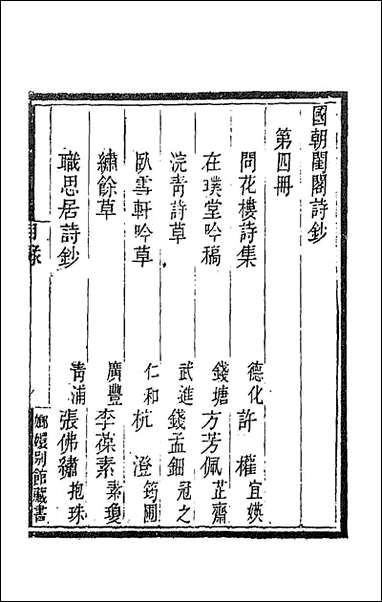 國朝閨閣詩鈔
第四冊
問花樓詩集 德化 許權 宜媖
在璞堂吟稿 錢塘 方芳佩 芷齋
浣青詩草 武進 錢孟鈿 冠之
臥雪軒吟草 仁和 杭澄 筠圃
繡餘草 廣豐 李葆素 素瓊
職思居詩鈔 青浦 張佛繡 抱珠
目錄
嫏嬛別館藏書